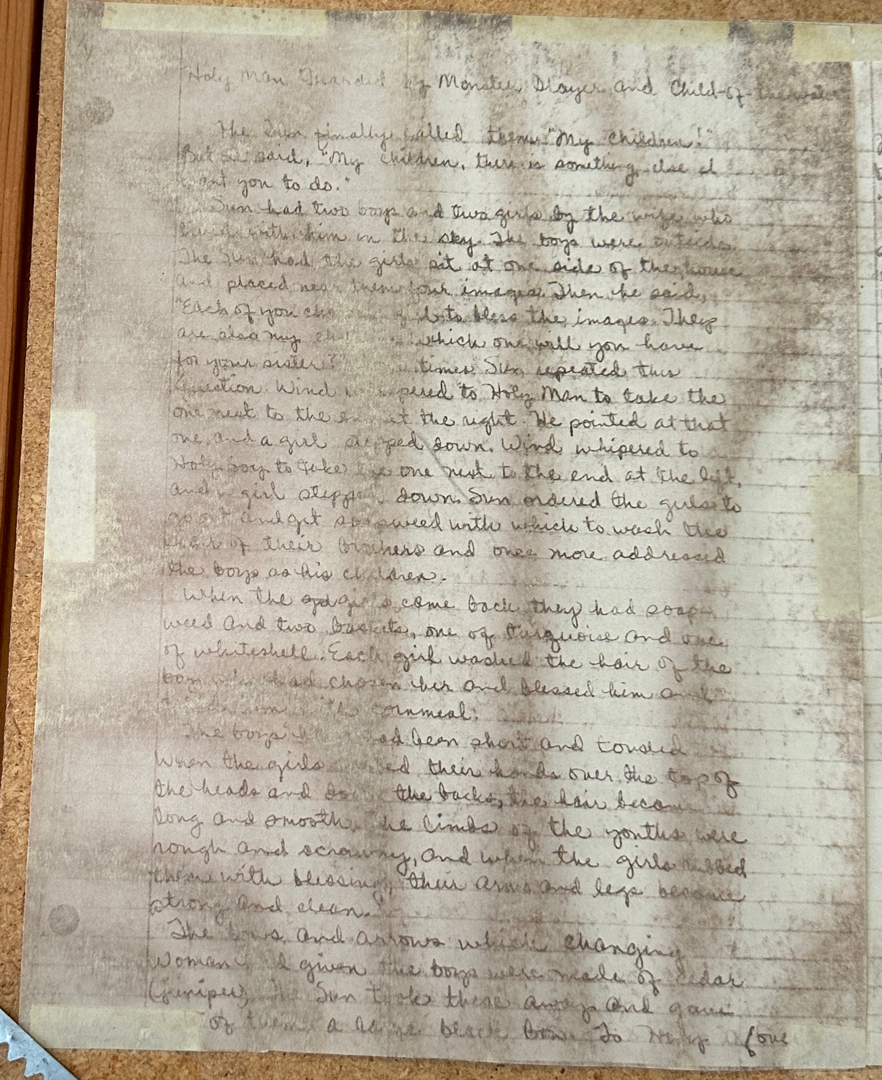 Holy Man Guarded by Monster Slayer and Child-of-the-water
The Sun finally called them "My Children!"
But he said, "My children, there is something else I
want you to do."
Sun had two boys and two girls by the wife who
lived with him in the sky. The boys were outside.
The Sun had the girls sit at one side of the house
and placed near them four images. Then he said,
"Each of you to bless the images. They
are also my which one will you have
for your sister? times Sun repeated this
question Wind whispered to Holy Man to take the
one next to the end at the right. He pointed at that
one, and a girl stepped down. Wind whipered to
Holy Boy to take the one next to the end at the left,
and girl stepped down. Sun ordered the girls to
go out and get soapweed with which to wash the
hair of their brothers and once more addressed
the boys as his children.
When the girls come back they had soap
weed and two baskets, one of turquoise and one
of whiteshell. Each girl washed the hair of the
boy who had chosen her and blessed him and
cornmeal.
The boys' had been short and tousled
When the girls their hands over the top of
the heads and down the backs, the hair became
long and smooth. The limbs of the youths were
rough and scrawny, and when the girls rubbed
them with blessing, their arms and legs became
strong and clean.
The bows and arrows which Changing
Woman had given the boys were made of cedar
(juniper). The Sun took these away and gave
of them a large black bow. To Holy (one